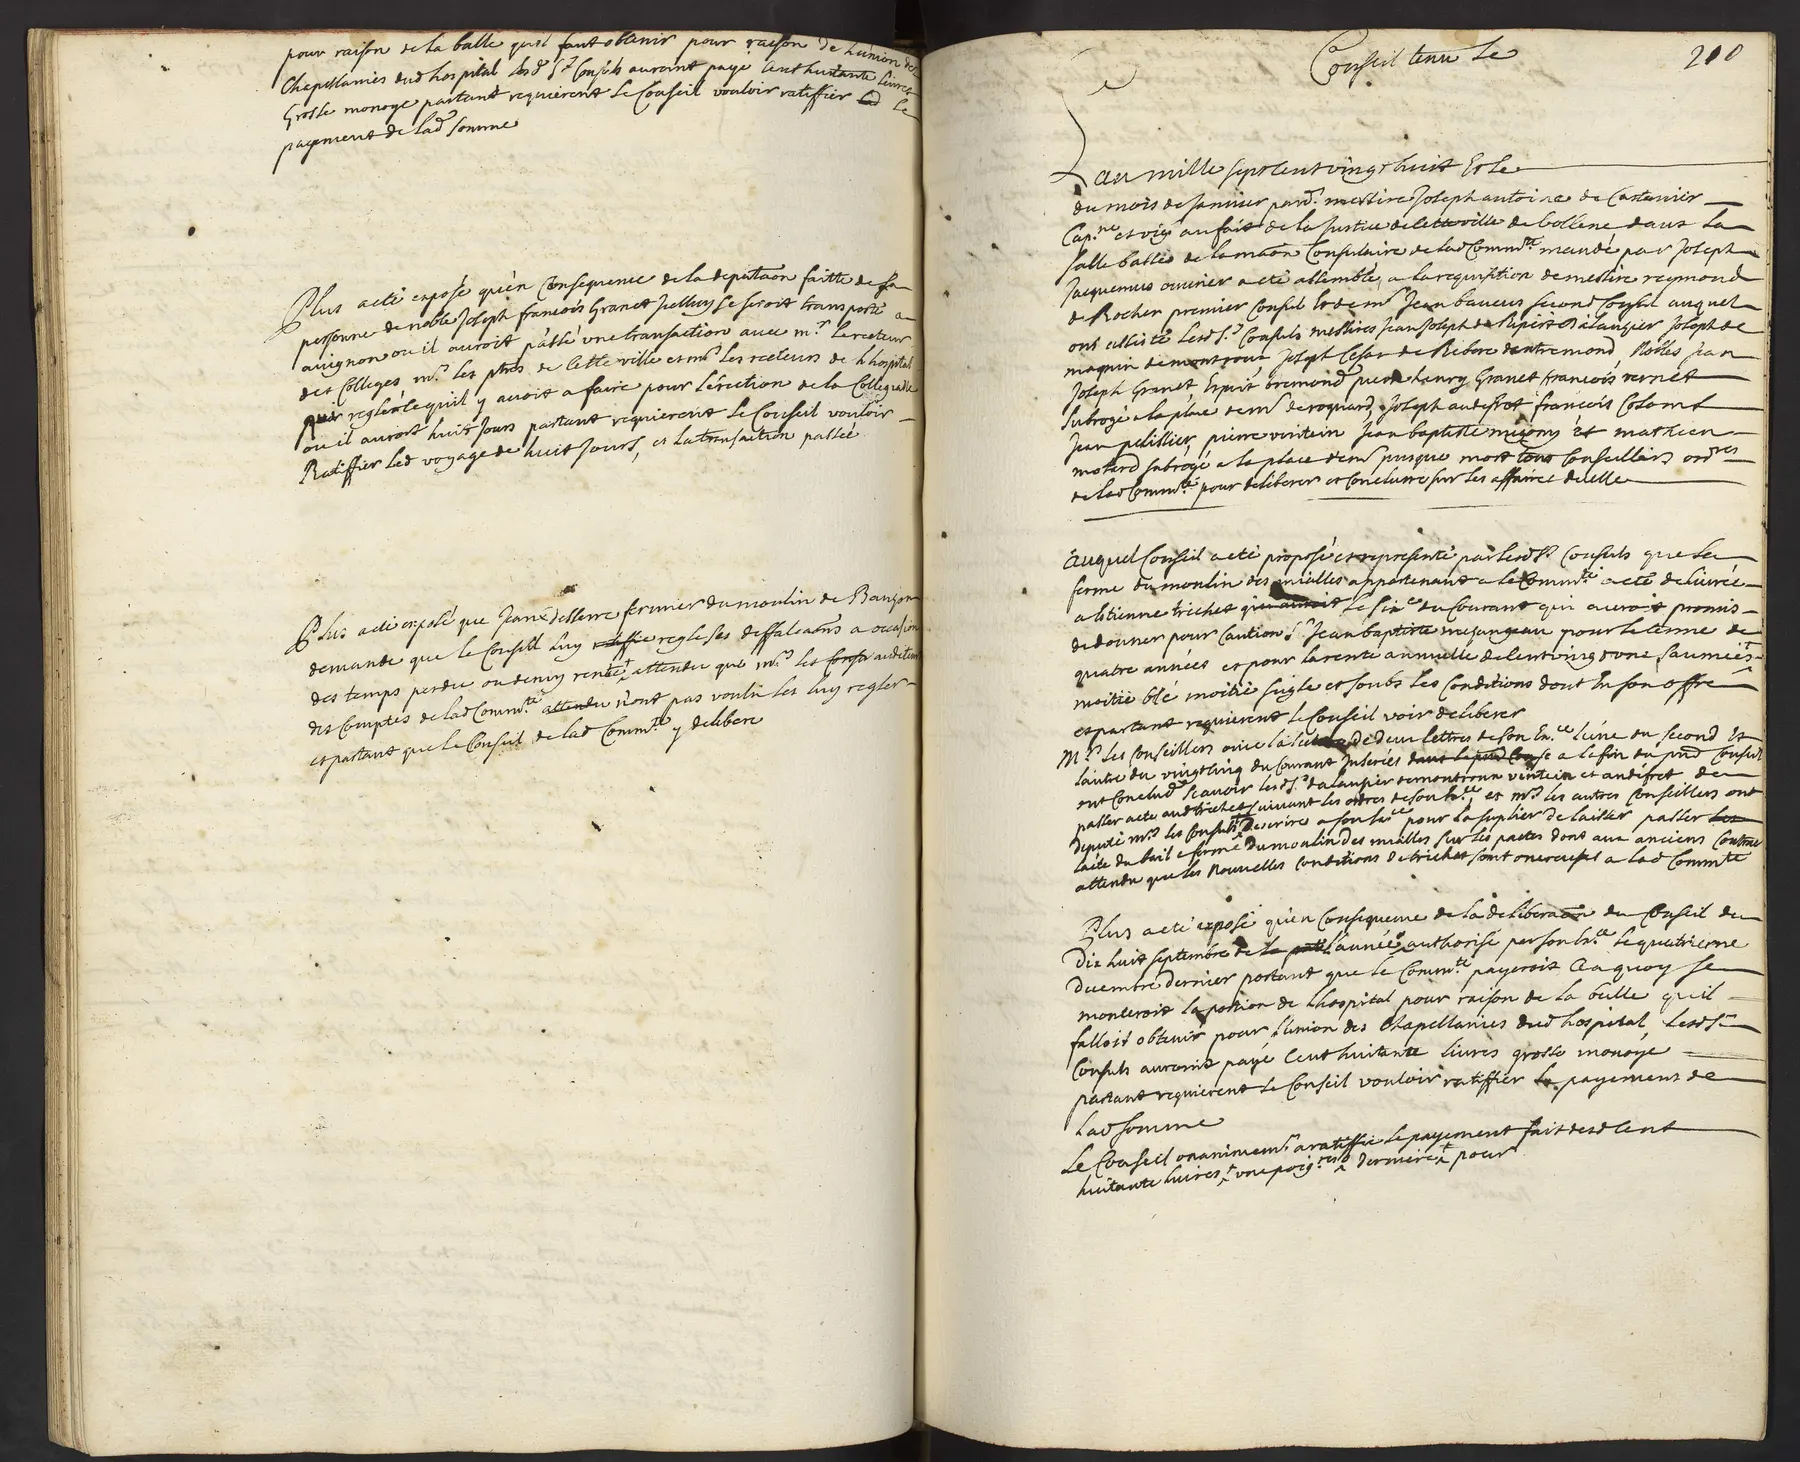 pour raison de la balle quil faut obtenir pour raison de lunion des
Chapellanies dud hospital lesd Srs Consuls auroint payé Cent huitante Livres
grosse monoye partant requierent le Conseil vouloir ratiffier lad le
payement de lad somme
Plus a eté exposé qu'en Consequence de la deputaõn faitte de la
personne de noble Joseph francois Granet Juelluy se seroit transporté a
avignon ou il auroit passé une transaction avec mr. le recteur
des Colleges mrs les ptres de Cette ville et mrs les recteurs de lhospital
reglé le quil y avoit a faire pour l'erection de la Collegialle
ou il auroit huit Jours partant requierent le Conseil vouloir
Ratiffier led voyage de huit Jours, et la transaction passée
Plus a eté exposé que Jean desserre fermier du moulin de Banzon
demande que le Conseil luy ratiffie regle ses deffalcaõns a occasion
des temps perdu ou demy rente attendu que mrs les Consu auditeurs
des Comptes de lad Commté attendu n'ont pas voulu les luy regler
et partant que le Conseil de lad Commté y delibere
Conseil tenu le
210
Lan mille sept cent vingt huit Et le
du mois de Janvier pard. messire Joseph antoine de Castanier
Capne et vig. au fait de la Justice de cette ville de bollene dans la
salle basse de la maõn Consulaire de lad Commté mandé par Joseph
Jacquemus ouvrier a eté assemblé, a la requisition de messire reymond
de Rocher premier Consul et de mr Jean baucus second Consul auquel
ont assisté lesd Srs Consuls messires Jean Joseph de Ripert dalauzier Joseph de
maquin de montroux Joseph Cesar de Ribere dantremond, Nobles Jean
Joseph Granet, Esprit bremond pierre henry Granet francois vernet
subrogé a la place de mr de roquard, Joseph audefret francois Colomb
Jean pelissier, pierre vintein Jean baptiste et mathieu
motard subrogé a la place de mr pusque mort tous Conseillers ordres
de lad Commté pour deliberer et Conclurre sur les affaires d'icelle
Auquel Conseil a eté proposé et representé par lesd Srs Consuls que la
ferme du moulin des mialles appartenant a la Commté a eté delivrée
a Estienne trichet qui auroit le six du Courant qui auroit promis
de donner pour Caution Sr. Jean baptiste pour le terme de
quatre années et pour la rente annuelle de Cent vingt une Saumées
moitié blé moitié seigle et soubs les Conditions dont En son offre
et partant requierent le Conseil voir deliberer
Mrs les Conseillers ouie la lecture de deux lettres de son Exce l'une du second Et
lautre du vingt cinq du Courant Inserées dans le pnd Conse a la fin du pnt Conseil
ont Conclud Scavoir lesd Srs dalauzier demontroux vintein et audefret de
passer acte aud trichet suivant les ordres de son Exce, et mrs les autres Conseillers ont
deputé mrs les Consuls descrire a son Exce pour la suplier de laisser passer les
lacte du bail a ferme du moulin des mialles sur les pactes dont aux anciens Contracts
attendu que les Nouvelles Conditions de trichet sont onereuses a lad Commté
Plus a eté exposé qu'en Consequence de la deliberaõn du Conseil du
dix huit septembre de la l'année authorisé par son Exce le quatrieme
decembre dernier portant que la Commté payeroit Ce a quoy se
monteroit la portion de lhospital pour raison de la bulle quil
falloit obtenir pour l'union des Chapellanies dud hospital, lesd Srs
Consuls auroint payé Cent huitante livres grosse monoye
partant requierent le Conseil vouloir ratiffier le payement de
lad somme
Le Conseil unanimemt a ratiffié le payement fait desd Cent
huitante livres, dernier pour